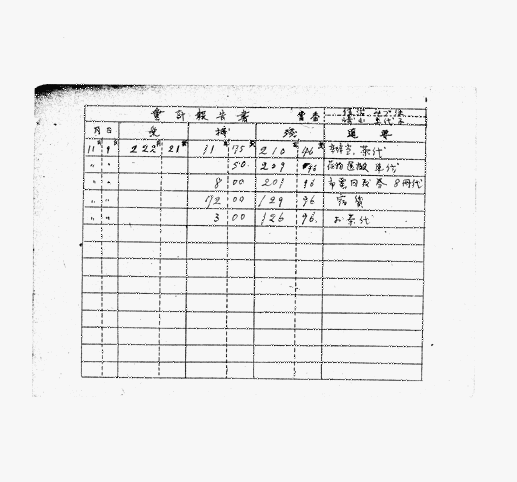 會計報告書 會書
月日 受 拂 残 適要
11 9 222 21 11 75 210 46 茶代
〃 〃 50 209 96 荷物運搬車代
〃 〃 8 00 201 96 市電回数券 8冊代
〃 〃 72 00 129 96 家賃
〃 〃 3 00 126 96 お茶代